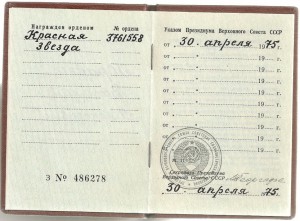 Награжден орденом № ордена
Красная 3761558
Звезда
З № 486278
Указом Президиума Верховного Совета СССР
от 30. апреля 1975.
от " 19 г.
от " 19 г.
от " 19 г.
от " 19 г.
от " 19 г.
от " 19 г.
от 19 г.
19 г.
19 г.
Секретарь Президиума
Верховного Совета СССР
30. апреля 1975.